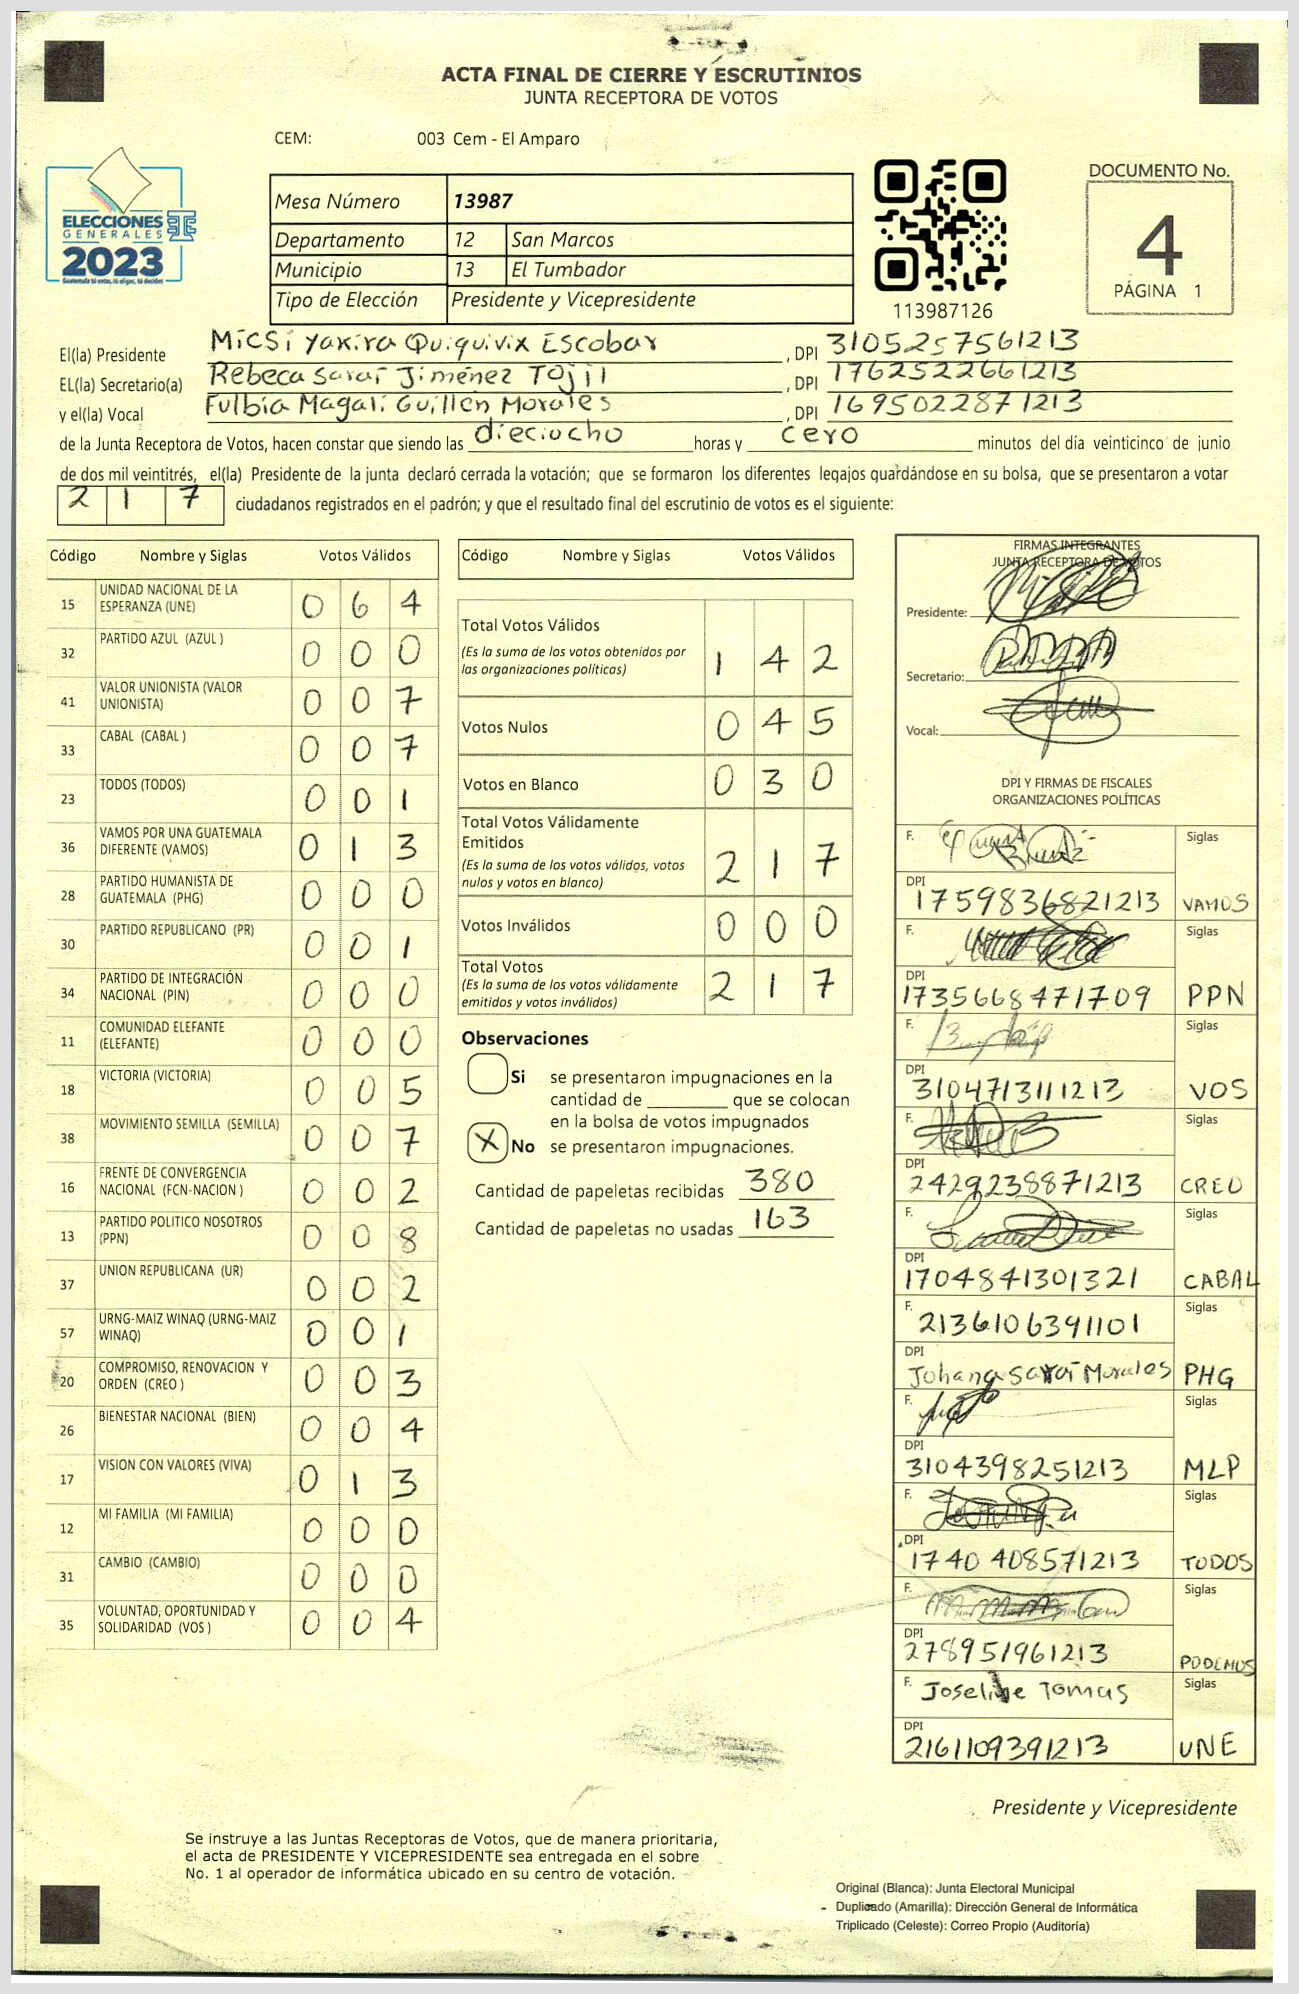 ACTA FINAL DE CIERRE Y ESCRUTINIOS
JUNTA RECEPTORA DE VOTOS
CEM: 003 Cem - El Amparo
ELECCIONES
GENERALES
2023
Mesa Número 13987
Departamento 12 San Marcos
Municipio 13 El Tumbador
Tipo de Elección Presidente y Vicepresidente
113987126
DOCUMENTO No.
4
PÁGINA 1
El(la) Presidente Micsi Yaxira Quiquivix Escobar , DPI 3105257561213
EL(la) Secretario(a) Rebeca Saraí Jiménez Tojil , DPI 1762522661213
y el(la) Vocal Fulbia Magali Guillén Morales , DPI 1695022871213
de la Junta Receptora de Votos, hacen constar que siendo las dieciocho horas y cero minutos del día veinticinco de junio
de dos mil veintitrés, el(la) Presidente de la junta declaró cerrada la votación; que se formaron los diferentes legajos guardándose en su bolsa, que se presentaron a votar
2 1 7 ciudadanos registrados en el padrón; y que el resultado final del escrutinio de votos es el siguiente:
Código Nombre y Siglas Votos Válidos
15 UNIDAD NACIONAL DE LA ESPERANZA (UNE) 0 6 4
32 PARTIDO AZUL (AZUL ) 0 0 0
41 VALOR UNIONISTA (VALOR UNIONISTA) 0 0 7
33 CABAL (CABAL ) 0 0 7
23 TODOS (TODOS) 0 0 1
36 VAMOS POR UNA GUATEMALA DIFERENTE (VAMOS) 0 1 3
28 PARTIDO HUMANISTA DE GUATEMALA (PHG) 0 0 0
30 PARTIDO REPUBLICANO (PR) 0 0 1
34 PARTIDO DE INTEGRACIÓN NACIONAL (PIN) 0 0 0
11 COMUNIDAD ELEFANTE (ELEFANTE) 0 0 0
18 VICTORIA (VICTORIA) 0 0 5
38 MOVIMIENTO SEMILLA (SEMILLA) 0 0 7
16 FRENTE DE CONVERGENCIA NACIONAL (FCN-NACION ) 0 0 2
13 PARTIDO POLITICO NOSOTROS (PPN) 0 0 8
37 UNION REPUBLICANA (UR) 0 0 2
57 URNG-MAIZ WINAQ (URNG-MAIZ WINAQ) 0 0 1
20 COMPROMISO, RENOVACION Y ORDEN (CREO ) 0 0 3
26 BIENESTAR NACIONAL (BIEN) 0 0 4
17 VISION CON VALORES (VIVA) 0 1 3
12 MI FAMILIA (MI FAMILIA) 0 0 0
31 CAMBIO (CAMBIO) 0 0 0
35 VOLUNTAD, OPORTUNIDAD Y SOLIDARIDAD (VOS ) 0 0 4
Código Nombre y Siglas Votos Válidos
Total Votos Válidos
(Es la suma de los votos obtenidos por las organizaciones políticas) 1 4 2
Votos Nulos 0 4 5
Votos en Blanco 0 3 0
Total Votos Válidamente Emitidos
(Es la suma de los votos válidos, votos nulos y votos en blanco) 2 1 7
Votos Inválidos 0 0 0
Total Votos
(Es la suma de los votos válidamente emitidos y votos inválidos) 2 1 7
Observaciones
Si se presentaron impugnaciones en la
cantidad de ________ que se colocan
en la bolsa de votos impugnados
X No se presentaron impugnaciones.
Cantidad de papeletas recibidas 380
Cantidad de papeletas no usadas 163
FIRMAS INTEGRANTES
JUNTA RECEPTORA DE VOTOS
Presidente:
Secretario:
Vocal:
DPI Y FIRMAS DE FISCALES
ORGANIZACIONES POLÍTICAS
F. Siglas
DPI 1759836821213 VAMOS
F. Siglas
DPI 1735668471709 PPN
F. Siglas
DPI 3104713111213 VOS
F. Siglas
DPI 2429238871213 CREO
F. Siglas
DPI 1704841301321 CABAL
F. 2136106391101 Siglas
DPI Johana Saraí Morales PHG
F. Siglas
DPI 3104398251213 MLP
F. Siglas
DPI 1740408571213 TODOS
F. Siglas
DPI 278951961213 PODEMOS
F. Joseline Tomas Siglas
DPI 2161109391213 UNE
Presidente y Vicepresidente
Se instruye a las Juntas Receptoras de Votos, que de manera prioritaria,
el acta de PRESIDENTE Y VICEPRESIDENTE sea entregada en el sobre
No. 1 al operador de informática ubicado en su centro de votación.
Original (Blanca): Junta Electoral Municipal
Duplicado (Amarilla): Dirección General de Informática
Triplicado (Celeste): Correo Propio (Auditoría)